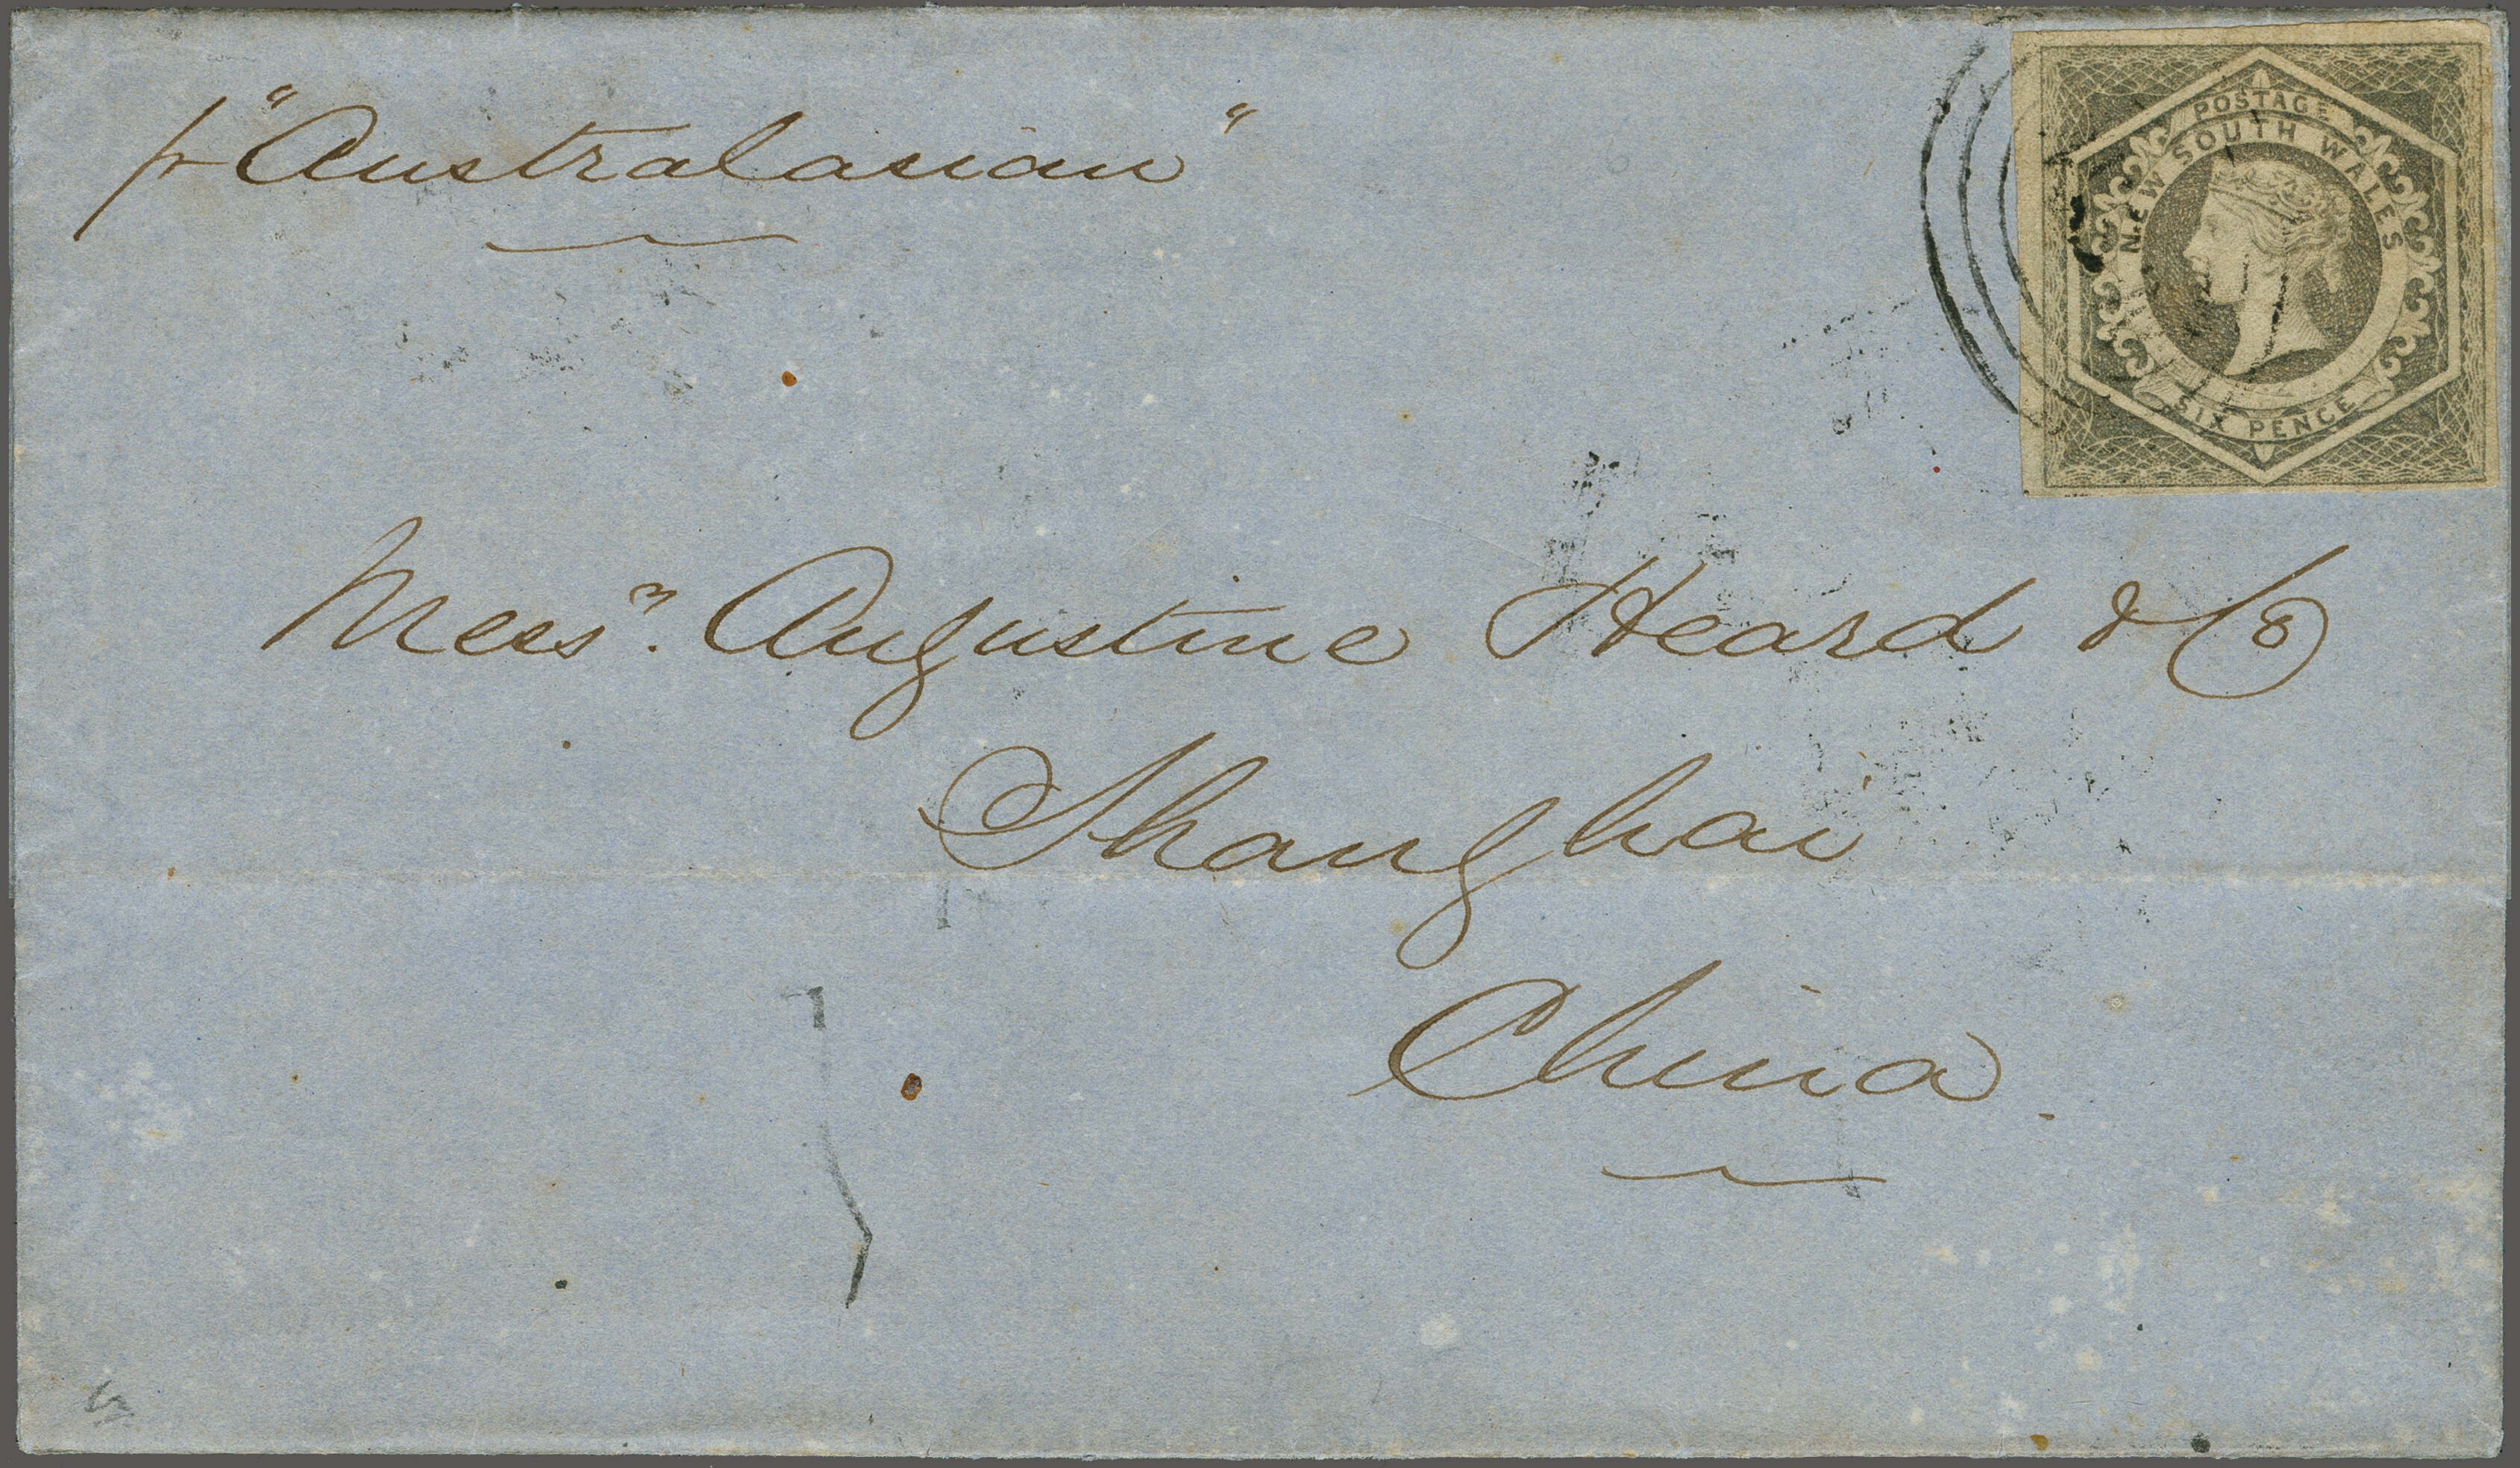 pr "Australasian"
POSTAGE
NEW SOUTH WALES
SIX PENCE
Mess^rs. Augustine Heard & Co
Shanghai
China.